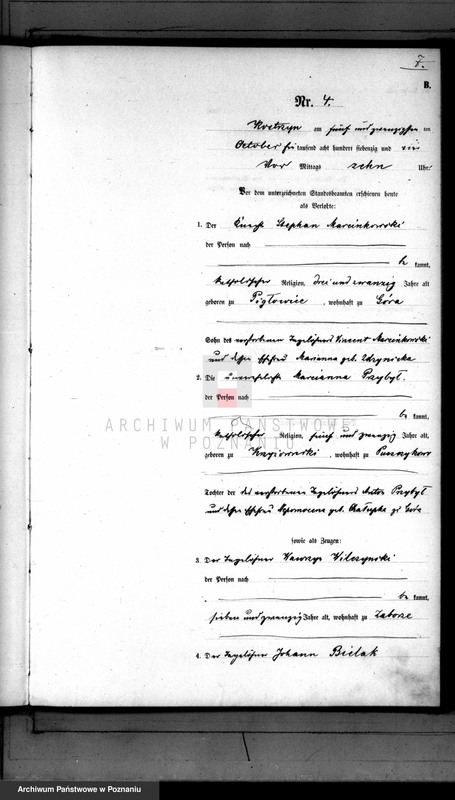 7.
B.
Nr. 4.
Kostrzyn am fünf und zwanzigsten
October tausend acht hundert siebenzig und vier
Vor Mittags zehn Uhr
Vor dem unterzeichneten Standesbeamten erschienen heute
als Verlobte:
1. Der Knecht Stephan Marcinkowski
der Person nach
be kannt,
katholischer Religion, drei und zwanzig Jahre alt
geboren zu Pigłowice, wohnhaft zu Góra
Sohn des verstorbenen Tagelöhners Vincent Marcinkowski
und dessen Ehefrau Marianna geb.
2. Die unverehelichte Marcianna Przybył.
der Person nach
be kannt,
katholischer Religion, fünf und zwanzig Jahre alt,
geboren zu, wohnhaft zu
Tochter der des verstorbenen Tagelöhners Anton Przybył
und dessen Ehefrau Nepomocena geb. zu Góra
sowie als Zeugen:
3. Der Tagelöhner Wawrzyn Wilczynski
der Person nach
be kannt,
sieben und zwanzig Jahre alt, wohnhaft zu
4. Der Tagelöhner Johann Bielak
ARCHIWUM PAŃSTWOWE
W POZNANIU
Archiwum Państwowe w Poznaniu